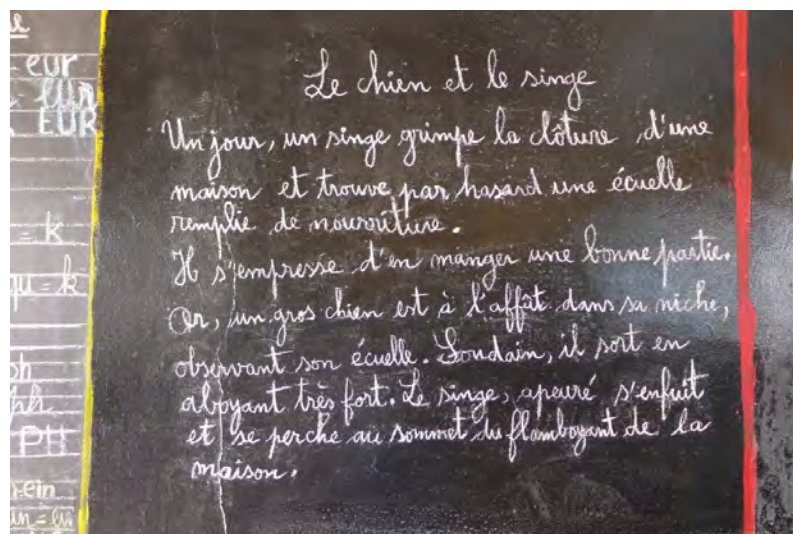 eur
EUR
= k
qu = k
ph
ph
PH
ein
Le chien et le singe
Un jour, un singe grimpe la clôture d'une
maison et trouve par hasard une écuelle
remplie de nourriture.
Il s'empresse d'en manger une bonne partie.
Or, un gros chien est à l'affût dans sa niche,
observant son écuelle. Soudain, il sort en
aboyant très fort. Le singe, apeuré s'enfuit
et se perche au sommet du flamboyant de la
maison.